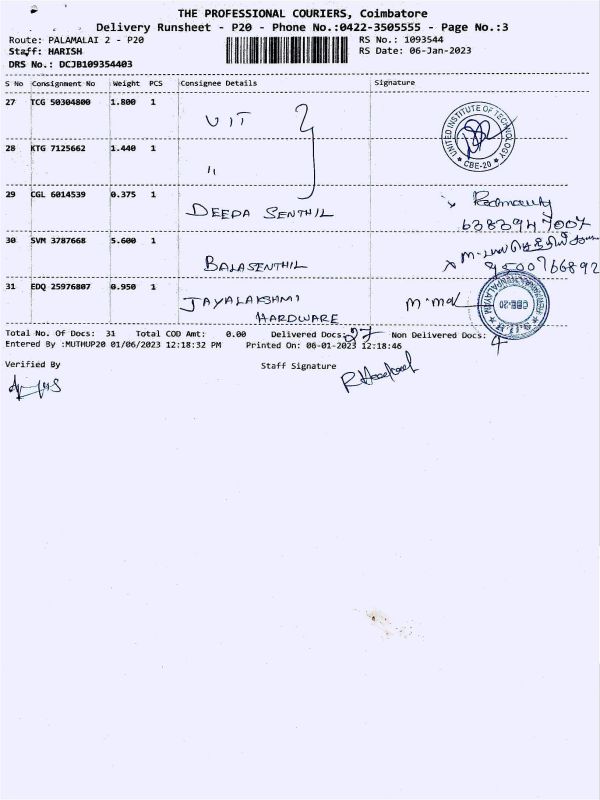 THE PROFESSIONAL COURIERS, Coimbatore
Delivery Runsheet - P20 - Phone No.:0422-3505555 - Page No.:3
Route: PALAMALAI 2 - P20
Staff: HARISH
DRS No.: DCJB109354403
RS No.: 1093544
RS Date: 06-Jan-2023
S No Consignment No Weight PCS Consignee Details Signature
27 TCG 50304800 1.800 1 VIT
UNITED INSTITUTE OF TECHNOLOGY
CBE-20
28 KTG 7125662 1.440 1 "
29 CGL 6014539 0.375 1 DEEPA SENTHIL
6383947007
30 SVM 3787668 5.600 1 BALASENTHIL
9500766892
31 EDQ 25976807 0.950 1 JAYALAKSHMI
HARDWARE
CBE-20
Total No. Of Docs: 31 Total COD Amt: 0.00 Delivered Docs: 27 Non Delivered Docs: 4
Entered By :MUTHUP20 01/06/2023 12:18:32 PM Printed On: 06-01-2023 12:18:46
Verified By Staff Signature